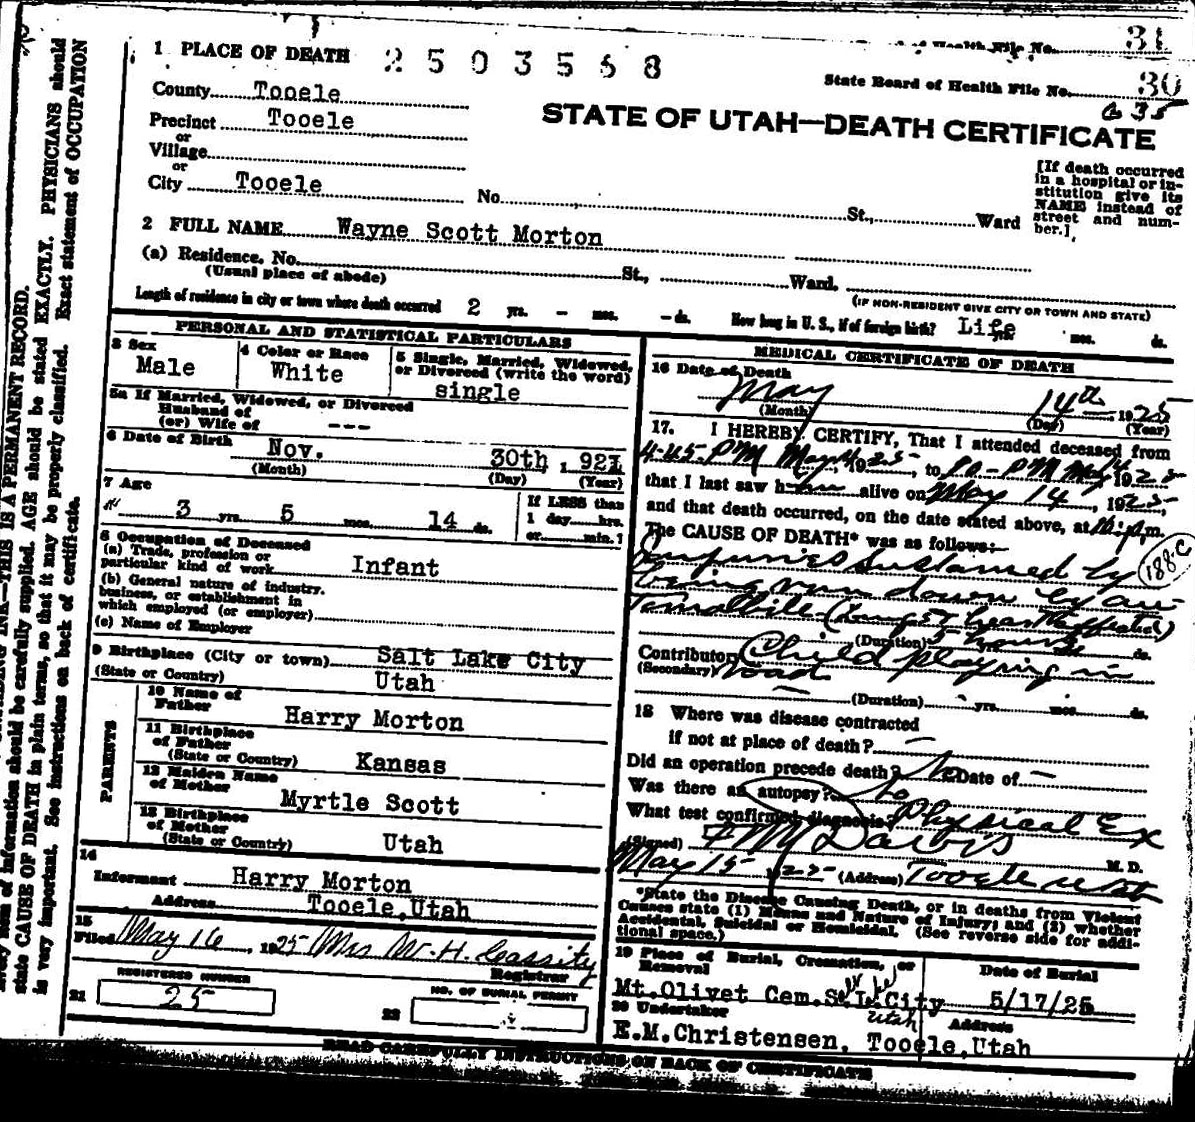 31
of Health File No.
1 PLACE OF DEATH 2503568
State Board of Health File No. 30
G 35
County Tooele
STATE OF UTAH—DEATH CERTIFICATE
Precinct Tooele
or
Village
or
City Tooele No. St., Ward
[If death occurred
in a hospital or in-
stitution give its
NAME instead of
street and num-
ber.]
2 FULL NAME Wayne Scott Morton
(a) Residence. No. St., Ward.
(Usual place of abode)
(IF NON-RESIDENT GIVE CITY OR TOWN AND STATE)
Length of residence in city or town where death occurred 2 yrs. - mos. - ds. How long in U. S., if of foreign birth? Life yrs. mos. ds.
PERSONAL AND STATISTICAL PARTICULARS
3 Sex
Male
4 Color or Race
White
5 Single, Married, Widowed,
or Divorced (write the word)
single
5a If Married, Widowed, or Divorced
Husband of
(or) Wife of ---
6 Date of Birth Nov. 30th, 1921
(Month) (Day) (Year)
7 Age
3 yrs. 5 mos. 14 ds.
If LESS than
1 day hrs.
or min.?
8 Occupation of Deceased
(a) Trade, profession or
particular kind of work Infant
(b) General nature of industry,
business, or establishment in
which employed (or employer)
(c) Name of Employer
9 Birthplace (City or town) Salt Lake City
(State or Country) Utah
PARENTS
10 Name of
Father Harry Morton
11 Birthplace
of Father
(State or Country) Kansas
12 Maiden Name
of Mother Myrtle Scott
13 Birthplace
of Mother
(State or Country) Utah
14
Informant Harry Morton
Address Tooele, Utah
15
Filed May 16, 1925 Mrs W. H. Cassity
Registrar
REGISTERED NUMBER
21 25
NO. OF BURIAL PERMIT
22
MEDICAL CERTIFICATE OF DEATH
16 Date of Death
May 14th 1925
(Month) (Day) (Year)
17. I HEREBY CERTIFY, That I attended deceased from
4-45-PM May 14, 1925, to 10-PM May 14 1925
that I last saw him alive on May 14, 1925,
and that death occurred, on the date stated above, at 10 p.m.
The CAUSE OF DEATH* was as follows:
Injuries sustained by
being run down by au-
tomobile (Lungs & heart affected)
188-C
(Duration) yrs. 5 hours ds.
Contributory Child playing in
(Secondary) road
(Duration) yrs. mos. ds.
18 Where was disease contracted
if not at place of death? —
Did an operation precede death? No Date of —
Was there an autopsy? No
What test confirmed diagnosis? Physical Ex
(Signed) F M Davis M. D.
May 15 1925 (Address) Tooele Utah
*State the Disease Causing Death, or in deaths from Violent
Causes state (1) Means and Nature of Injury; and (2) whether
Accidental, Suicidal or Homicidal. (See reverse side for addi-
tional space.)
19 Place of Burial, Cremation, or
Removal
Mt. Olivet Cem. S. L. City
Utah
Date of Burial
5/17/25
20 Undertaker
E.M.Christensen, Tooele, Utah
Address
READ CAREFULLY INSTRUCTIONS ON BACK OF CERTIFICATE
INK—THIS IS A PERMANENT RECORD.
item of information should be carefully supplied. AGE should be stated EXACTLY. PHYSICIANS should
state CAUSE OF DEATH in plain terms, so that it may be properly classified. Exact statement of OCCUPATION
is very important. See instructions on back of certificate.